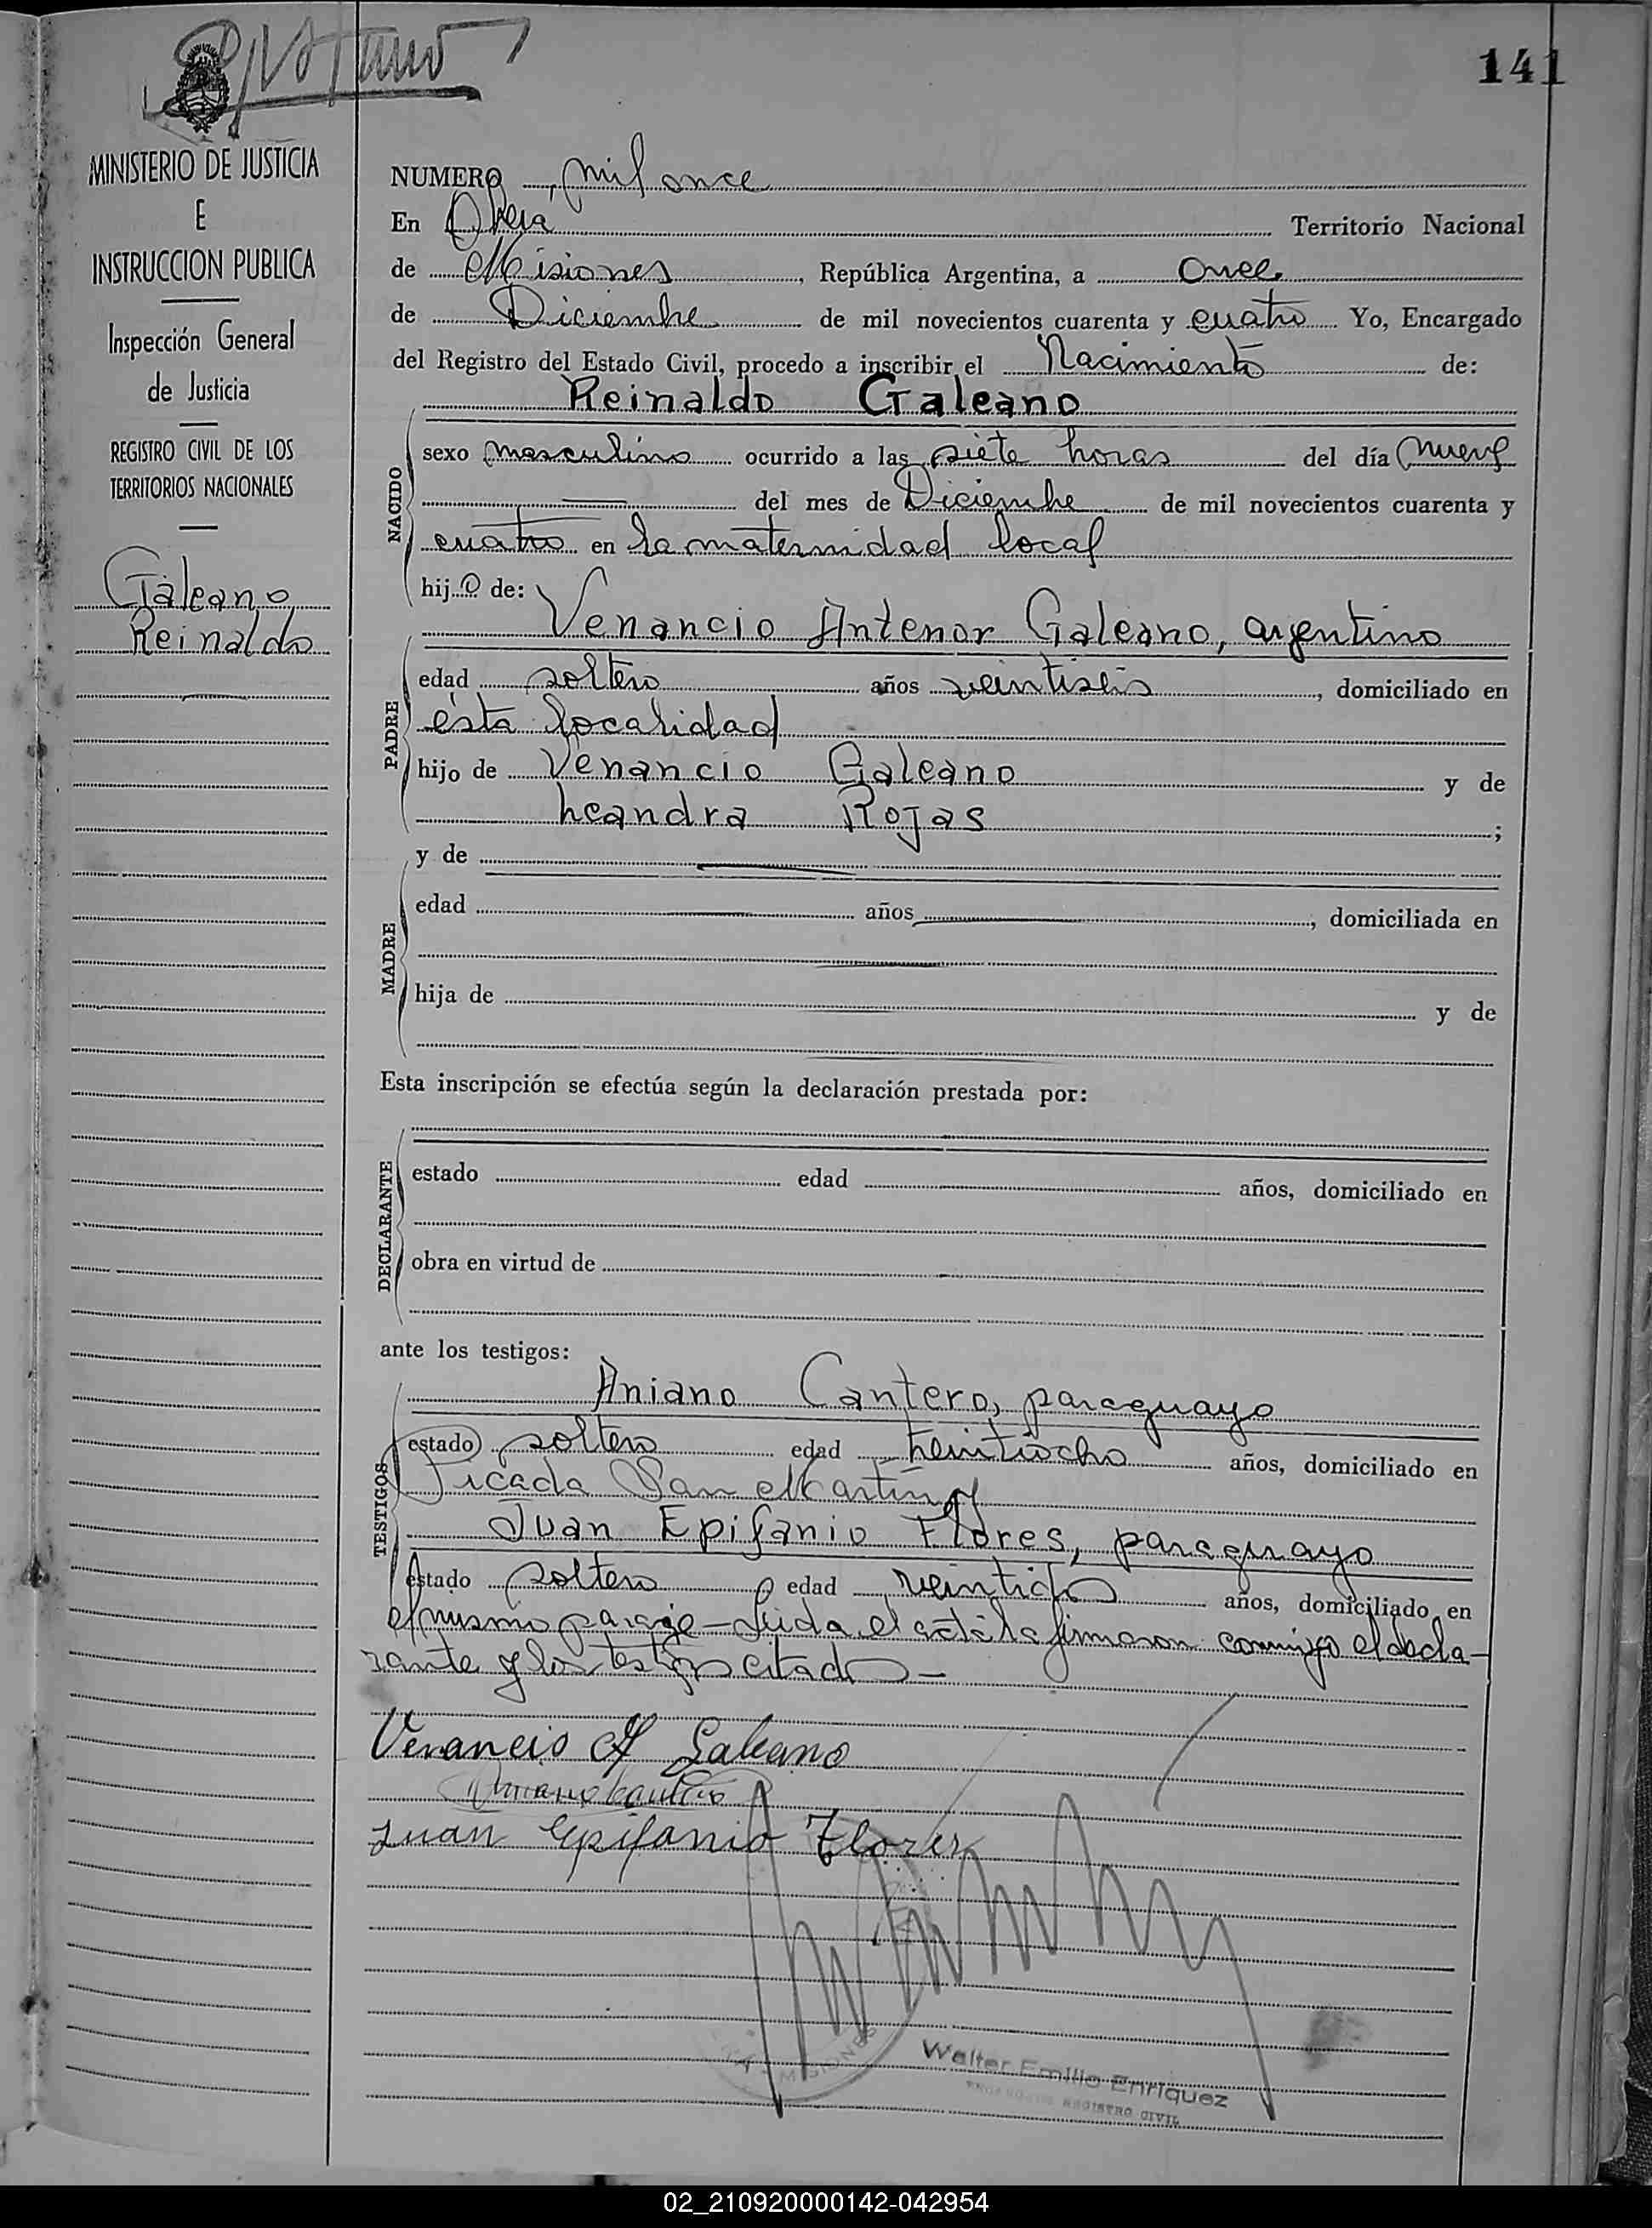 141
MINISTERIO DE JUSTICIA
E
INSTRUCCION PUBLICA
Inspección General
de Justicia
REGISTRO CIVIL DE LOS
TERRITORIOS NACIONALES
Galeano
Reinaldo
NUMERO mil once
En Oberá Territorio Nacional
de Misiones, República Argentina, a once
de Diciembre de mil novecientos cuarenta y cuatro Yo, Encargado
del Registro del Estado Civil, procedo a inscribir el Nacimiento de:
Reinaldo Galeano
NACIDO
sexo masculino ocurrido a las siete horas del día nueve
del mes de Diciembre de mil novecientos cuarenta y
cuatro en la maternidad local
hijo de:
Venancio Antenor Galeano, argentino
PADRE
edad soltero años veintiseis, domiciliado en
ésta localidad
hijo de Venancio Galeano y de
Leandra Rojas;
y de
MADRE
edad años, domiciliada en
hija de y de
Esta inscripción se efectúa según la declaración prestada por:
DECLARANTE
estado edad años, domiciliado en
obra en virtud de
ante los testigos:
Aniano Cantero, paraguayo
TESTIGOS
estado soltero edad veintiocho años, domiciliado en
Picada San Martín y
Juan Epifanio Flores, paraguayo
estado soltero edad años, domiciliado en
el mismo paraje - Leida el acta la firmaron conmigo el decla-
rante y los testigos citados -
Venancio A Galeano
Aniano Cantero
Juan Epifanio Flores
MISIONES
Walter Emilio Enriquez
REGISTRO CIVIL
02_210920000142-042954